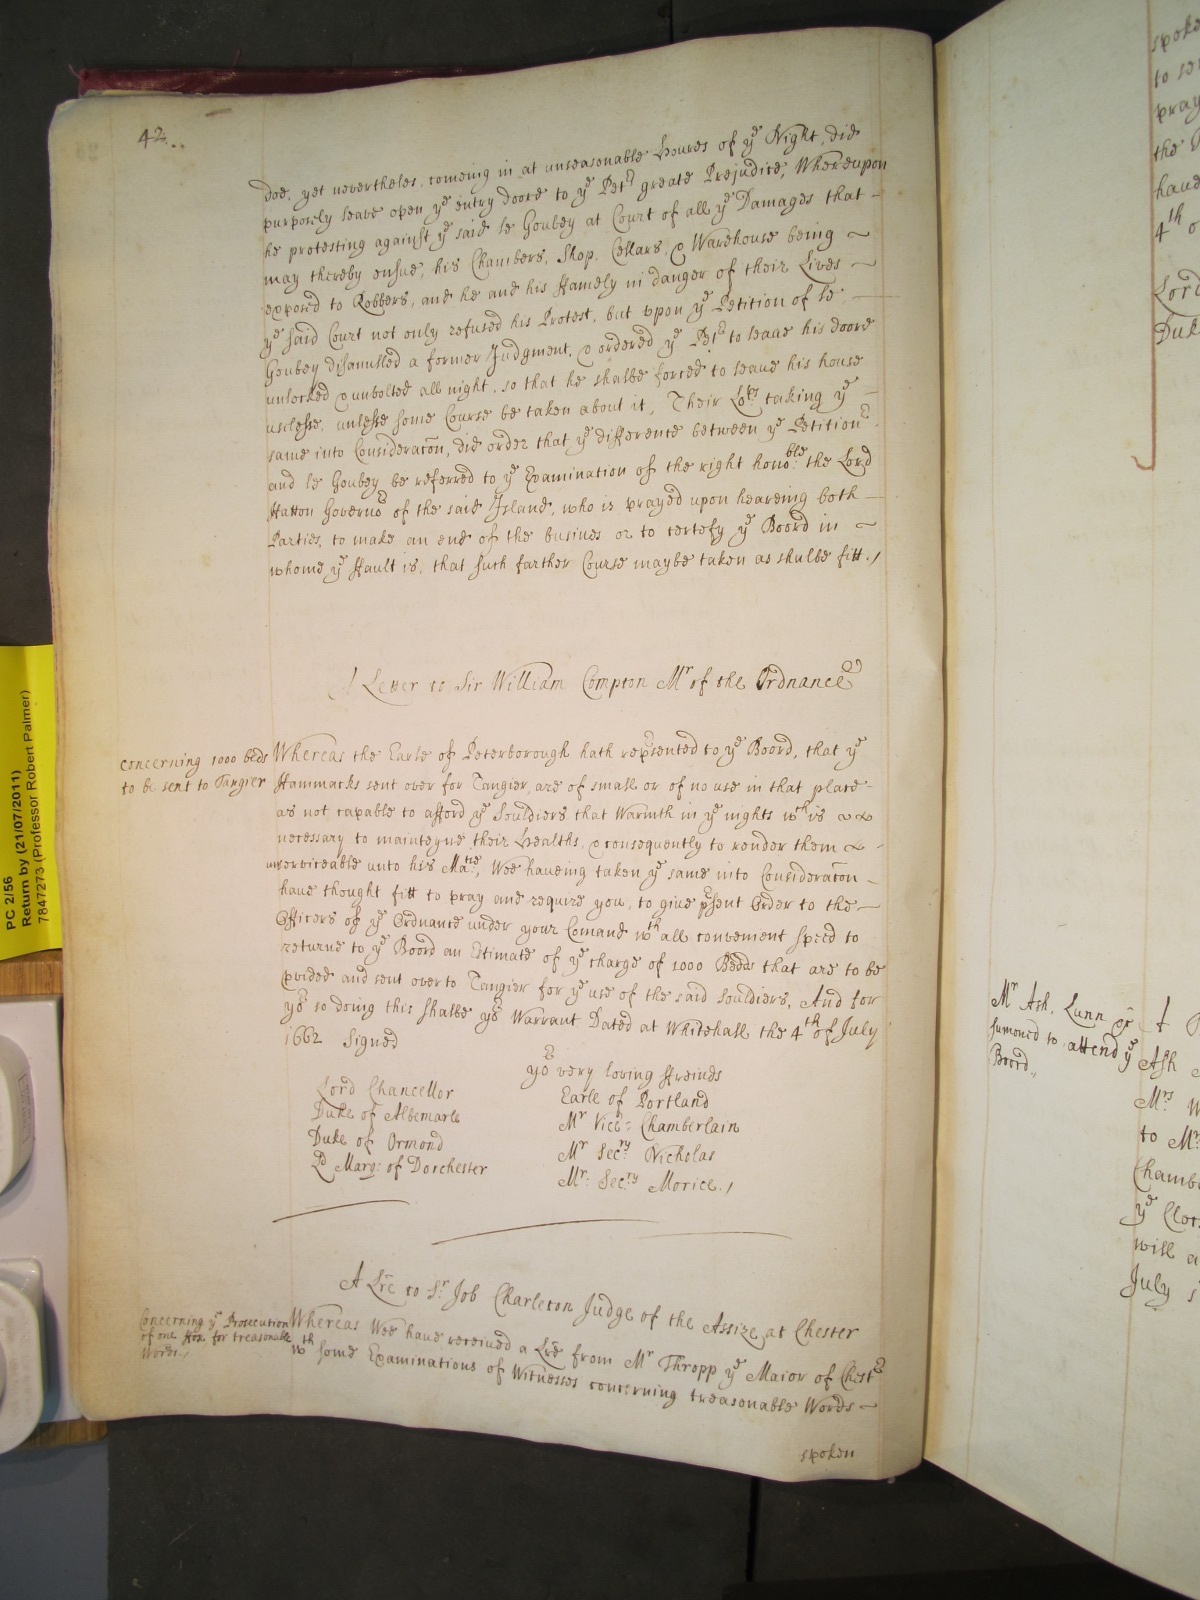 42..
doe, yet nevertheles, comeing in at unseasonable houres of ye Night, did
purposely leave open ye entry doore to ye Petr greate Prejudice, Whereupon
he protesting against ye said le Goubey at Court of all ye Damages that
may thereby ensue, his Chambers, Shop, Cellars, & Warehouse being
exposed to Robbers, and he and his ffamely in danger of their Lives
ye said Court not only refused his Protest, but upon ye Petition of le
Goubey disanulled a former Judgment, & ordered ye Petr to leave his doore
unlocked & unbolted all night, so that he shalbe forced to leave his house
uselesse, unlesse some Course be taken about it, Their Lopps taking ye
same into Consideracōn, did order that ye difference between ye Petitionr
and le Goubey be referred to ye Examination of the right honoble: the Lord
Hatton Governor of the said Island, who is prayed upon heareing both
Parties, to make an end of the busines or to certefy ye Boord in
whome ye ffault is, that such farther Course maybe taken as shalbe fitt./
A Letter to Sir William Compton Mr of the Ordnance
concerning 1000 beds
to be sent to Tangier
Whereas the Earle of Peterborough hath repsented to ye Boord, that ye
Hammacks sent over for Tangier, are of small or of no use in that place
as not capable to afford ye Souldiers that Warmth in ye nights wch is
necessary to mainteyne their healths, & consequently to render them
unserviceable unto his Matie, Wee haveing taken ye same into Consideracōn
have thought fitt to pray and require you, to give psent Order to the
Officers of ye Ordnance under your Comand wth all convenient speed to
returne to ye Boord an Estimate of ye charge of 1000 Bedds that are to be
pvided and sent over to Tangier for ye use of the said souldiers, And for
yor so doing this shalbe yor Warrant Dated at Whitehall the 4th of July
1662 Signed
yor very loving ffreinds
Lord Chancellor
Duke of Albemarle
Duke of Ormond
Ld Marq: of Dorchester
Earle of Portland
Mr Vice= Chamberlain
Mr Secry: Nicholas
Mr: Secry: Morice./
A Lrē to Sr Job Charleton Judge of the Assize at Chester
Concerning ye Prosecution
of one ffox for treasonable
Words./
Whereas Wee have received a Lrē from Mr Thropp ye Maior of Chestr
wth some Examinations of Witnesses concerning treasonable Words
spoken
Mr Ash, Lunn
sumoned to attend ye
Boord,,
spoke
to
pray
the
have
4th
Lord
Duk
Ash
Mrs
to Mr
Chamb
ye
will
July
PC 2/56
Return by (21/07/2011)
7847273 (Professor Robert Palmer)